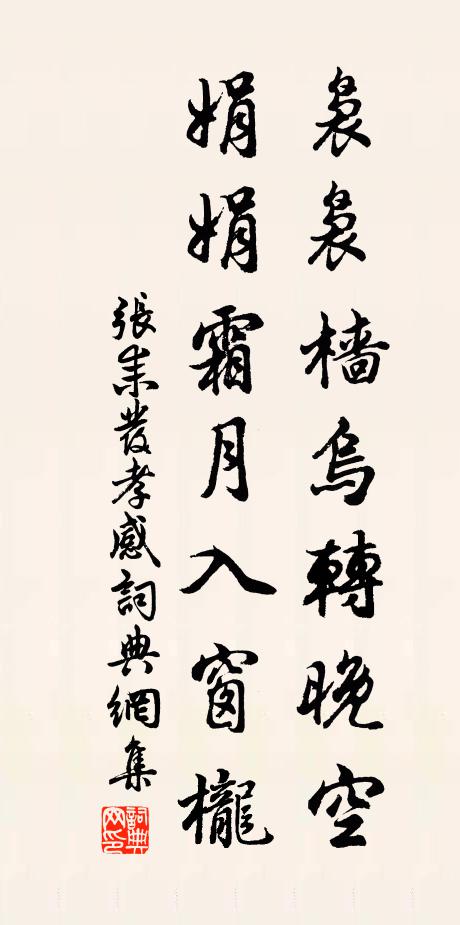 裊裊檣烏轉晚空
娟娟霜月入窗櫳
張耒發孝感詞典網集
詞典網印